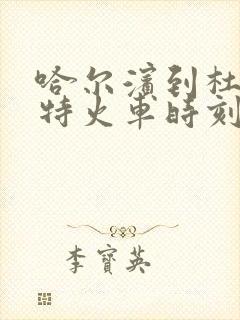 哈尔滨到杜
特火车时刻
李寶英